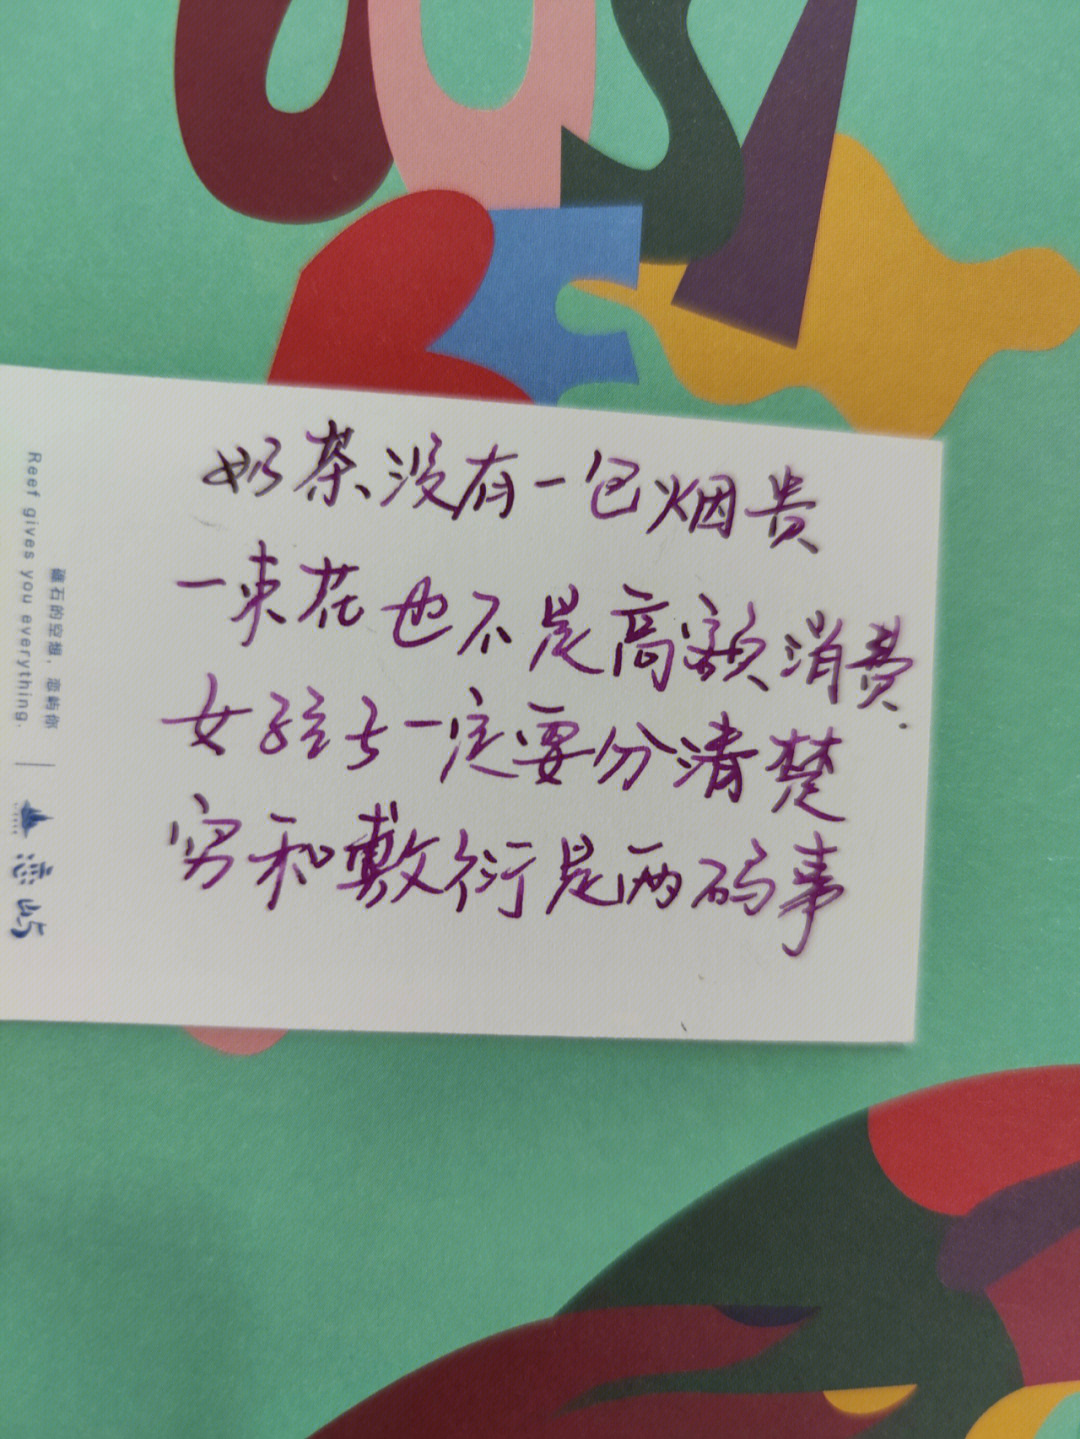 奶茶没有一包烟贵
一束花也不是高额消费.
女孩子一定要分清楚
穷和敷衍是两码事
Reef gives you everything.
礁石的空想，恋屿你
恋屿